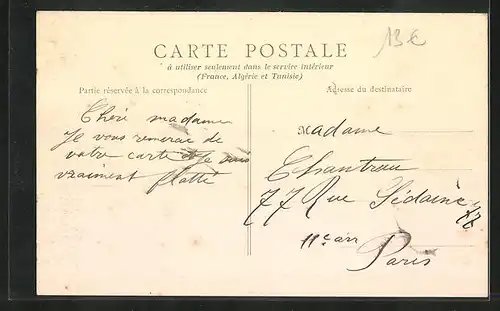 13€
CARTE POSTALE
à utiliser seulement dans le service intérieur
(France, Algérie et Tunisie)
Partie réservée à la correspondance
Adresse du destinataire
Chère madame
Je vous remercie de
votre carte et je suis
vraiment flatté
Madame
Chantreau
77 Rue Sedaine 77
11e arr
Paris